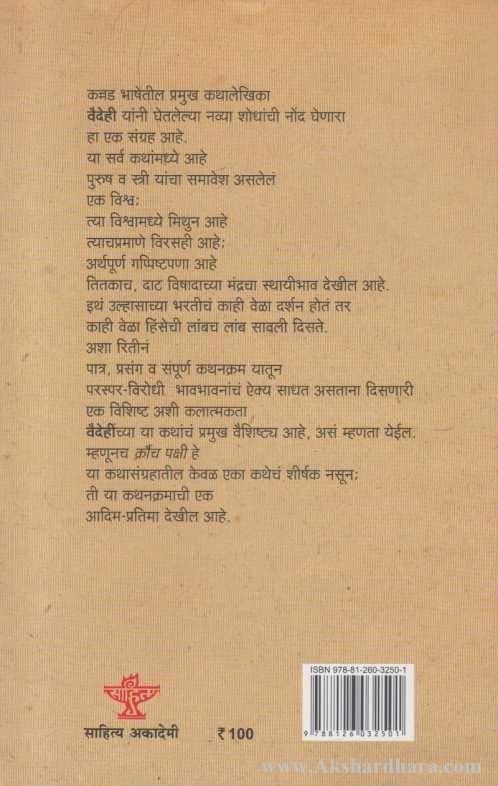 कन्नड भाषेतील प्रमुख कथालेखिका
वैदेही यांनी घेतलेल्या नव्या शोधांची नोंद घेणारा
हा एक संग्रह आहे.
या सर्व कथांमध्ये आहे
पुरुष व स्त्री यांचा समावेश असलेलं
एक विश्व;
त्या विश्वामध्ये मिथुन आहे
त्याचप्रमाणे विरसही आहे;
अर्थपूर्ण गप्पिष्टपणा आहे
तितकाच, दाट विषादाच्या मंद्रचा स्थायीभाव देखील आहे.
इथं उल्हासाच्या भरतीचं काही वेळा दर्शन होतं तर
काही वेळा हिंसेची लांबच लांब सावली दिसते.
अशा रितीनं
पात्र, प्रसंग व संपूर्ण कथनक्रम यातून
परस्पर-विरोधी भावभावनांचं ऐक्य साधत असताना दिसणारी
एक विशिष्ट अशी कलात्मकता
वैदेहींच्या या कथांचं प्रमुख वैशिष्ट्य आहे, असं म्हणता येईल.
म्हणूनच क्रौंच पक्षी हे
या कथासंग्रहातील केवळ एका कथेचं शीर्षक नसून;
ती या कथनक्रमाची एक
आदिम-प्रतिमा देखील आहे.
ISBN 978-81-260-3250-1
साहित्य
साहित्य अकादेमी
₹ 100
9 788126 032501
www.Akshardhara.com